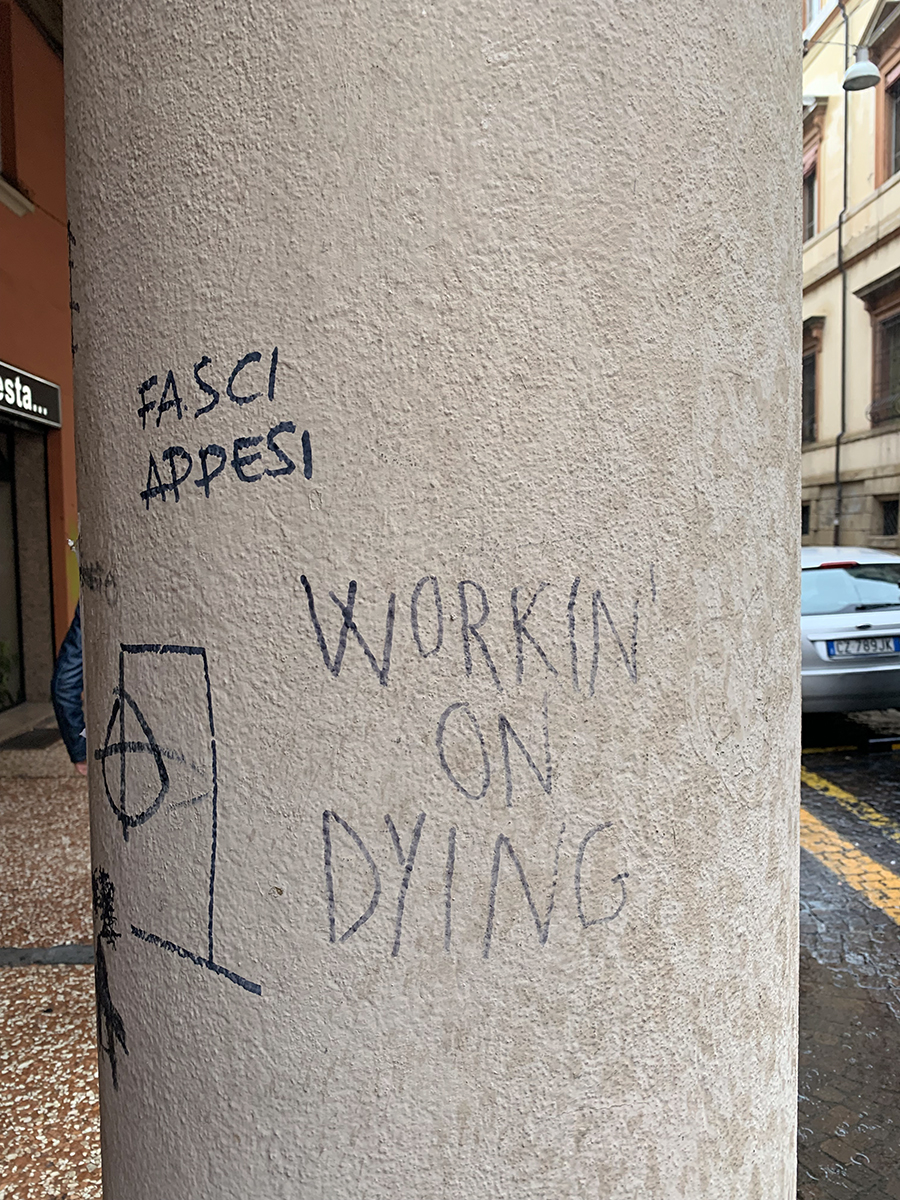 esta...
FASCI
APPESI
WORKIN'
ON
DYING
CZ 789JK